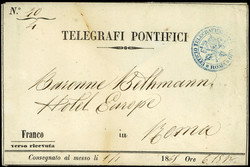 N.º 40
4
TELEGRAFI PONTIFICI
Baronne Bethmann
Hotel Europe
Franco
verso ricevuta
in
Roma
Consegnato al messo li
185 Ore